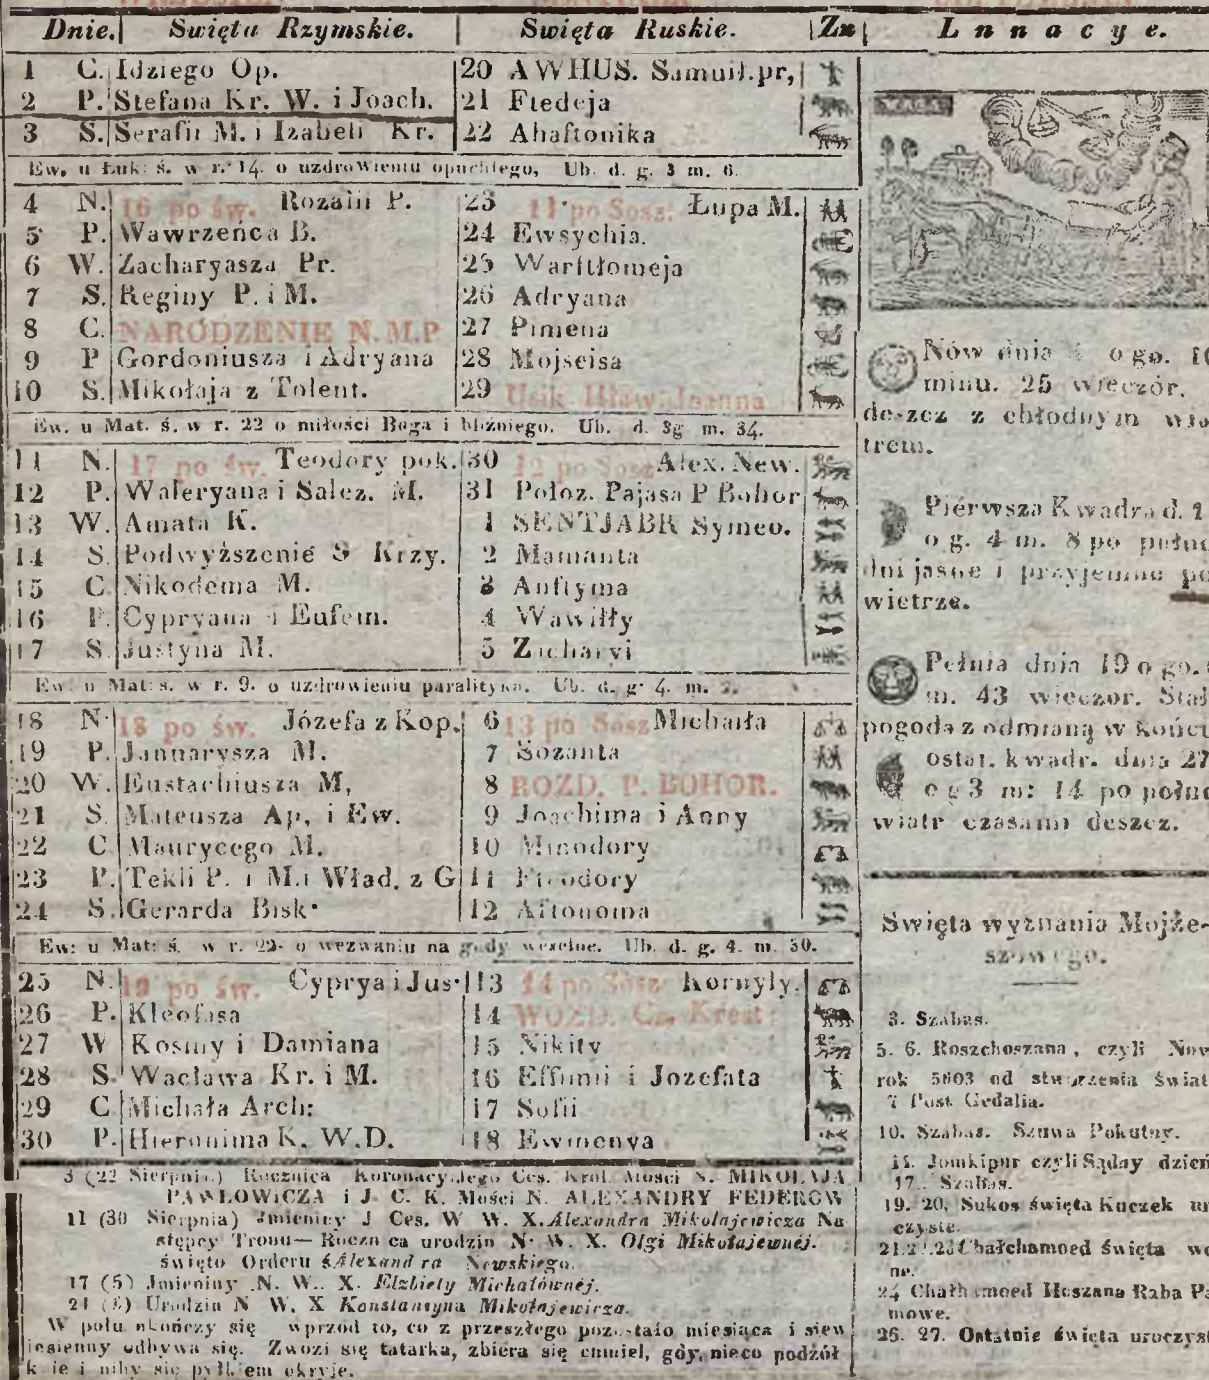 Dnie. Swięta Rzymskie. Swięta Ruskie. Zn Lnnacye.
1 C. Idziego Op. 20 AWHUS. Samuił.pr,
2 P. Stefana Kr. W. i Joach. 21 Ftedeja
3 S. Serafii M. i Izabeli Kr. 22 Ahaftonika
Ew. u Łuk: ś. w r. 14. o uzdrowieniu opuchłego, Ub. d. g. 3 m. 6.
4 N. 16 po św. Rozalii P. 23 11 po Sosz. Łupa M.
5 P. Wawrzeńca B. 24 Ewsychia.
6 W. Zacharyasza Pr. 25 Warftłomeja
7 S. Reginy P. i M. 26 Adryana
8 C. NARODZENIE N.M.P 27 Pimena
9 P Gordoniusza i Adryana 28 Mojseisa
10 S. Mikołaja z Tolent. 29 Usik Hław. Joanna
Ew. u Mat. ś. w r. 22 o miłości Boga i bliźniego. Ub. d. 3g m. 34.
11 N. 17 po św. Teodory pok. 30 12 po Sosz Alex. New.
12 P. Waleryana i Salez. M. 31 Połoz. Pajasa P Bohor
13 W. Amata K. 1 SENTJABR Symeo.
14 S. Podwyższenie S Krzy. 2 Mamanta
15 C Nikodema M. 3 Anftyma
16 P. Cypryana i Eufem. 4 Wawiłły
17 S. Justyna M. 5 Zacharyi
Ew. u Mat: s. w r. 9. o uzdrowieniu paralityka. Ub. d. g. 4. m.
18 N. 18 po św. Józefa z Kop. 6 13 po Sosz Michaiła
19 P. Januarysza M. 7 Sozanta
20 W. Eustachiusza M, 8 ROZD. P. BOHOR.
21 S. Mateusza Ap, i Ew. 9 Joachima i Anny
22 C Maurycego M. 10 Minodory
23 P. Tekli P. i M.i Wład. z G 11 Fteodory
24 S. Gerarda Bisk. 12 Aftonoma
Ew: u Mat: ś. w r. 22- o wezwaniu na gody weselne. Ub. d. g. 4. m. 50.
25 N. 19 po św. Cyprya i Jus. 13 14 po Sosz Kornyly.
26 P. Kleofasa 14 WOZD. Cz. Krest
27 W Kosmy i Damiana 15 Nikity
28 S. Wacława Kr. i M. 16 Effimii i Jozefata
29 C. Michała Arch: 17 Sofii
30 P. Hieronima K. W.D. 18 Ewmenya
3 (22 Sierpnia) Rocznica Koronacyi Jego Ces. Król. Mości N. MIKOŁAJA
PAWŁOWICZA i J. C. K. Mości N. ALEXANDRY FEDERÓW
11 (30 Sierpnia) Jmieniny J Ces. W W. X. Alexandra Mikołajewicza Na
stępcy Tronu— Roczn ca urodzin N. W. X. Olgi Mikołajewnéj.
święto Orderu ś Alexand ra Newskiego.
17 (5) Jmieniny N. W. X. Elzbiety Michałównéj.
21 Urodzin N W. X Konstantyna Mikołajewicza.
W polu ukończy się wprzód to, co z przeszłego pozostało miesiąca i siew
jesienny odbywa się. Zwozi się tatarka, zbiéra się chmiel, gdy, nieco podżół
k ie i niby się pyłkiem okryje.
Nów dnia o go.
minu. 25 wieczór.
deszcz z chłodnym wia
trem.
Piérwsza Kwadra d.
o g. 4 m. 8 po połud
dni jasne i przyjemne po
wietrze.
Pełnia dnia 19 o go.
m. 43 wieczor. Stał
pogoda z odmianą w końcu
ostat. kwadr. dnia 27
o g 3 m: 14 po połud
wiatr czasami deszcz.
Swięta wyznania Mojże-
szowego.
3. Szabas.
5. 6. Roszchoszana, czyli Now
rok 5603 od stworzenia świat
7 Post Gedalia.
10. Szabas. Szuwa Pokutny.
14. Jomkipur czyli Sądny dzień
17. Szabas.
19. 20, Sukos święta Kuczek ur
czyste.
21.22.23 Chałchamoed święta wo
ne.
24 Chałhamoed Hoszana Raba Pa
mowe.
26. 27. Ostatnie święta uroczyst